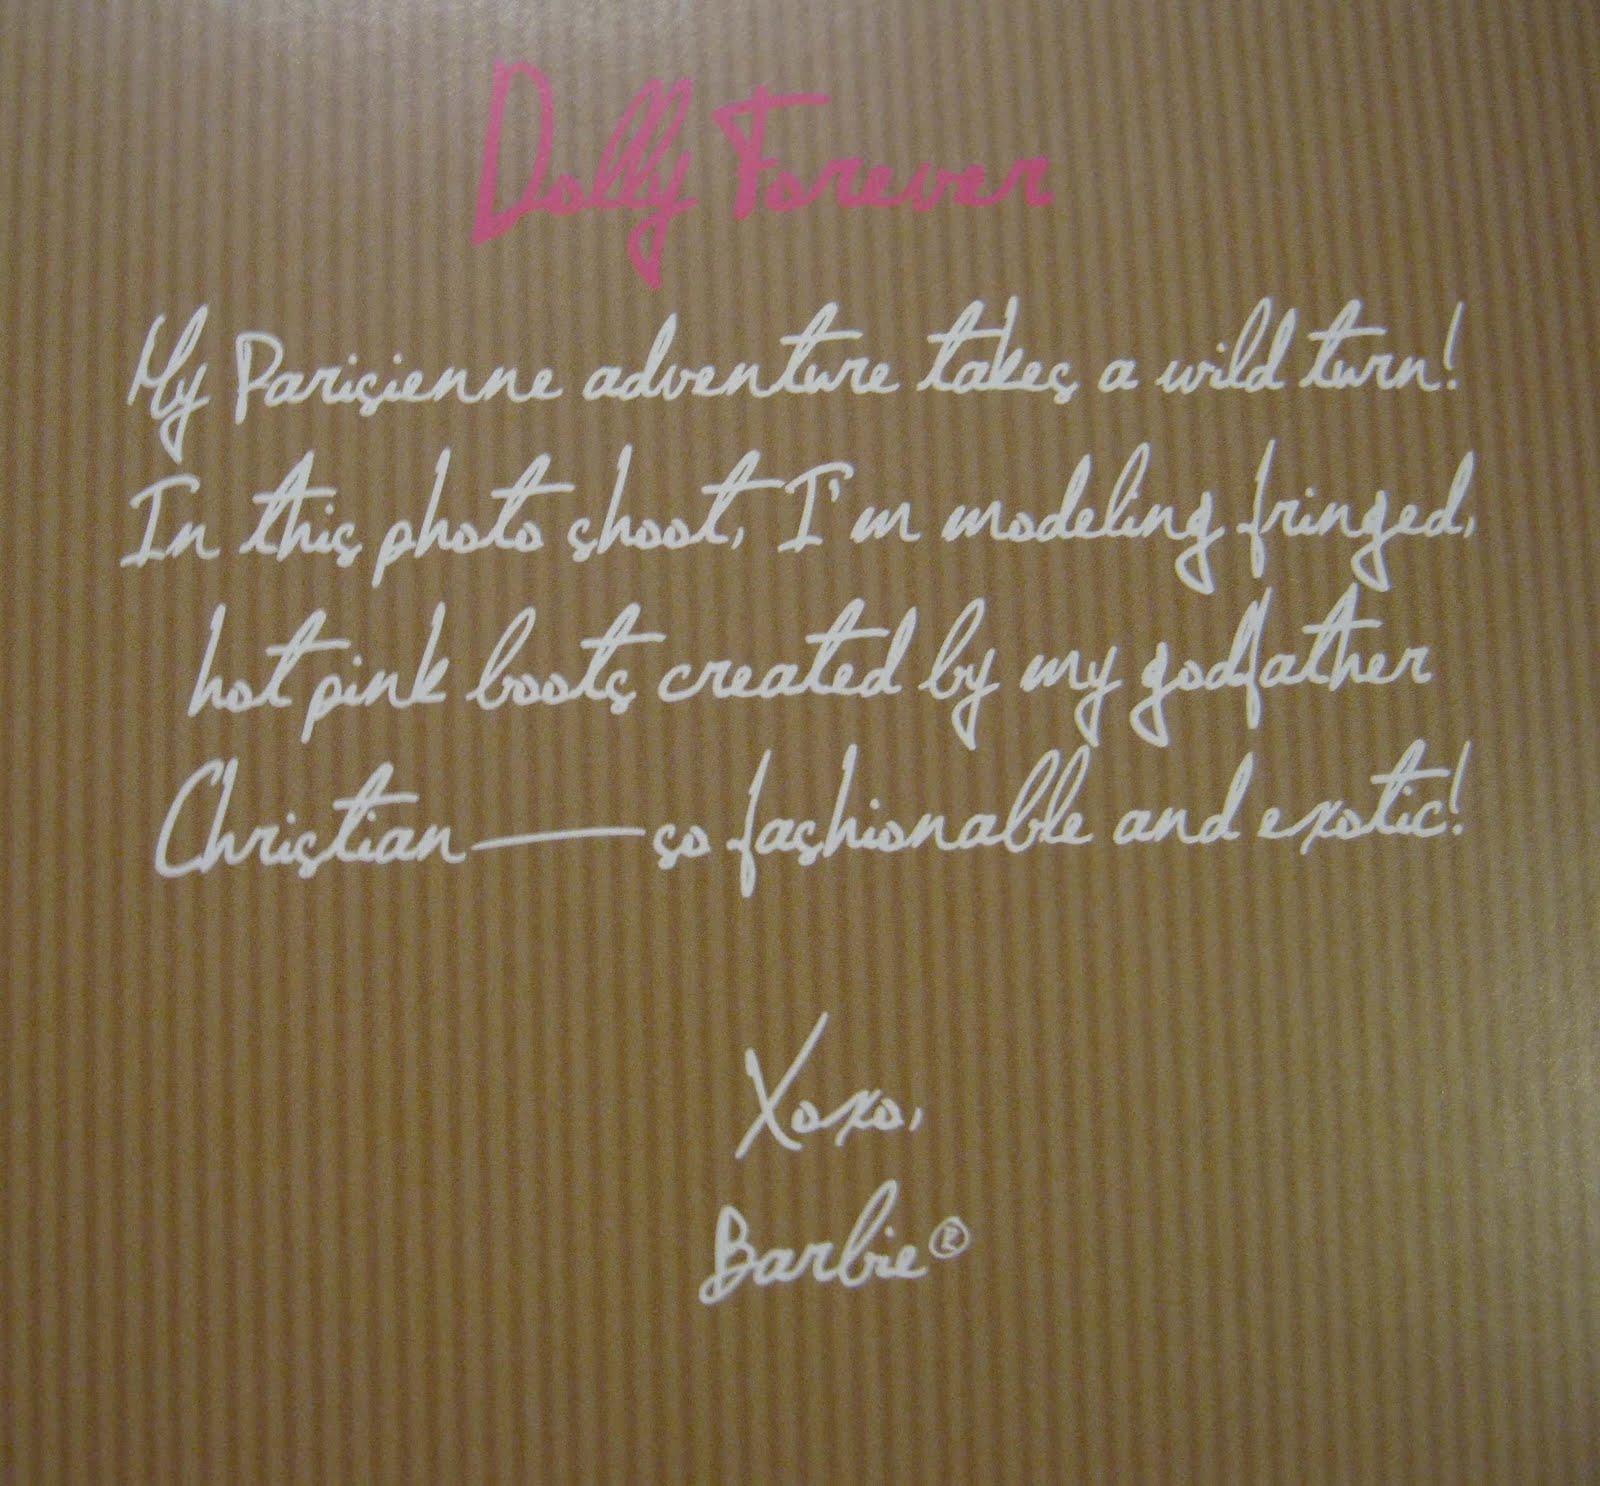 Dolly Forever
My Parisienne adventure takes a wild turn!
In this photo shoot, I'm modeling fringed,
hot pink boots created by my godfather
Christian—so fashionable and exotic!
Xoxo,
Barbie®